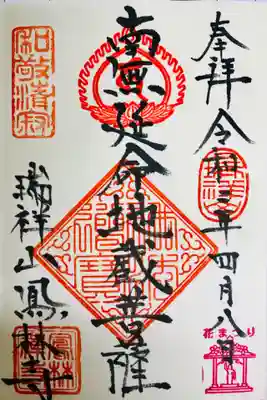 奉拝
令和三年四月八日
南無延命地蔵菩薩
瑞祥山鳳林寺
和敬清寂
花まつり